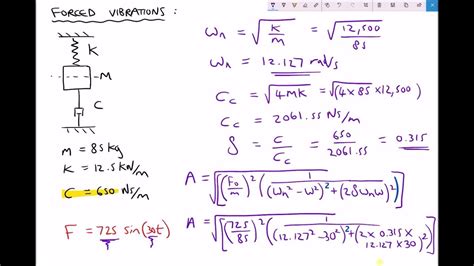 FORCED VIBRATIONS :
K
M
C
M = 85kg
K = 12.5 kN/m
C = 650 NS/m
F = 725 sin(30t)
ωn = √(K/m) = √(12,500/85)
ωn = 12.127 rad/s
Cc = √(4MK) = √(4 × 85 × 12,500)
Cc = 2061.55 NS/m
δ = C/Cc = 650/2061.55 = 0.315
A = √[(F0/m)² (1/((ωn² − ω²)² + (2δωnω)²))]
A = √[(725/85)² (1/((12.127² − 30²)² + (2 × 0.315 × 12.127 × 30)²))]